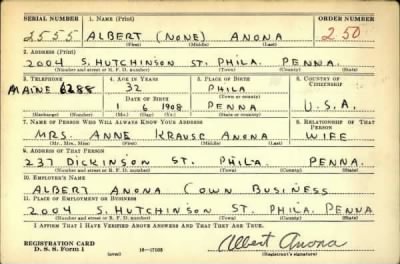 SERIAL NUMBER 1. NAME (Print) ORDER NUMBER
2555 ALBERT (NONE) ANONA 250
(First) (Middle) (Last)
2. ADDRESS (Print)
2004 S. HUTCHINSON ST. PHILA. PENNA.
(Number and street or R. F. D. number) (Town) (County) (State)
3. TELEPHONE 4. AGE IN YEARS 5. PLACE OF BIRTH 6. COUNTRY OF CITIZENSHIP
MAINE 6288 32 PHILA
DATE OF BIRTH (Town or county)
1 6 1908 PENNA U.S.A.
(Exchange) (Number) (Mo.) (Day) (Yr.) (State or country)
7. NAME OF PERSON WHO WILL ALWAYS KNOW YOUR ADDRESS 8. RELATIONSHIP OF THAT PERSON
MRS. ANNE KRAUSE ANONA WIFE
(Mr., Mrs., Miss) (First) (Middle) (Last)
9. ADDRESS OF THAT PERSON
237 DICKINSON ST. PHILA. PENNA.
(Number and street or R. F. D. number) (Town) (County) (State)
10. EMPLOYER'S NAME
ALBERT ANONA (OWN BUSINESS
11. PLACE OF EMPLOYMENT OR BUSINESS
2004 S. HUTCHINSON ST. PHILA. PENNA
(Number and street or R. F. D. number) (Town) (County) (State)
I AFFIRM THAT I HAVE VERIFIED ABOVE ANSWERS AND THAT THEY ARE TRUE.
REGISTRATION CARD
D. S. S. Form 1 (over) Albert Anona
(Registrant's signature)